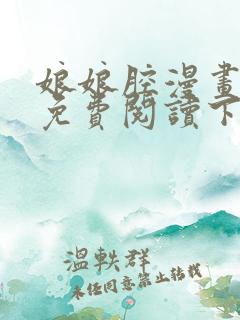 娘娘腔漫畫
免費閱讀下
溫軼群
未經同意禁止轉載